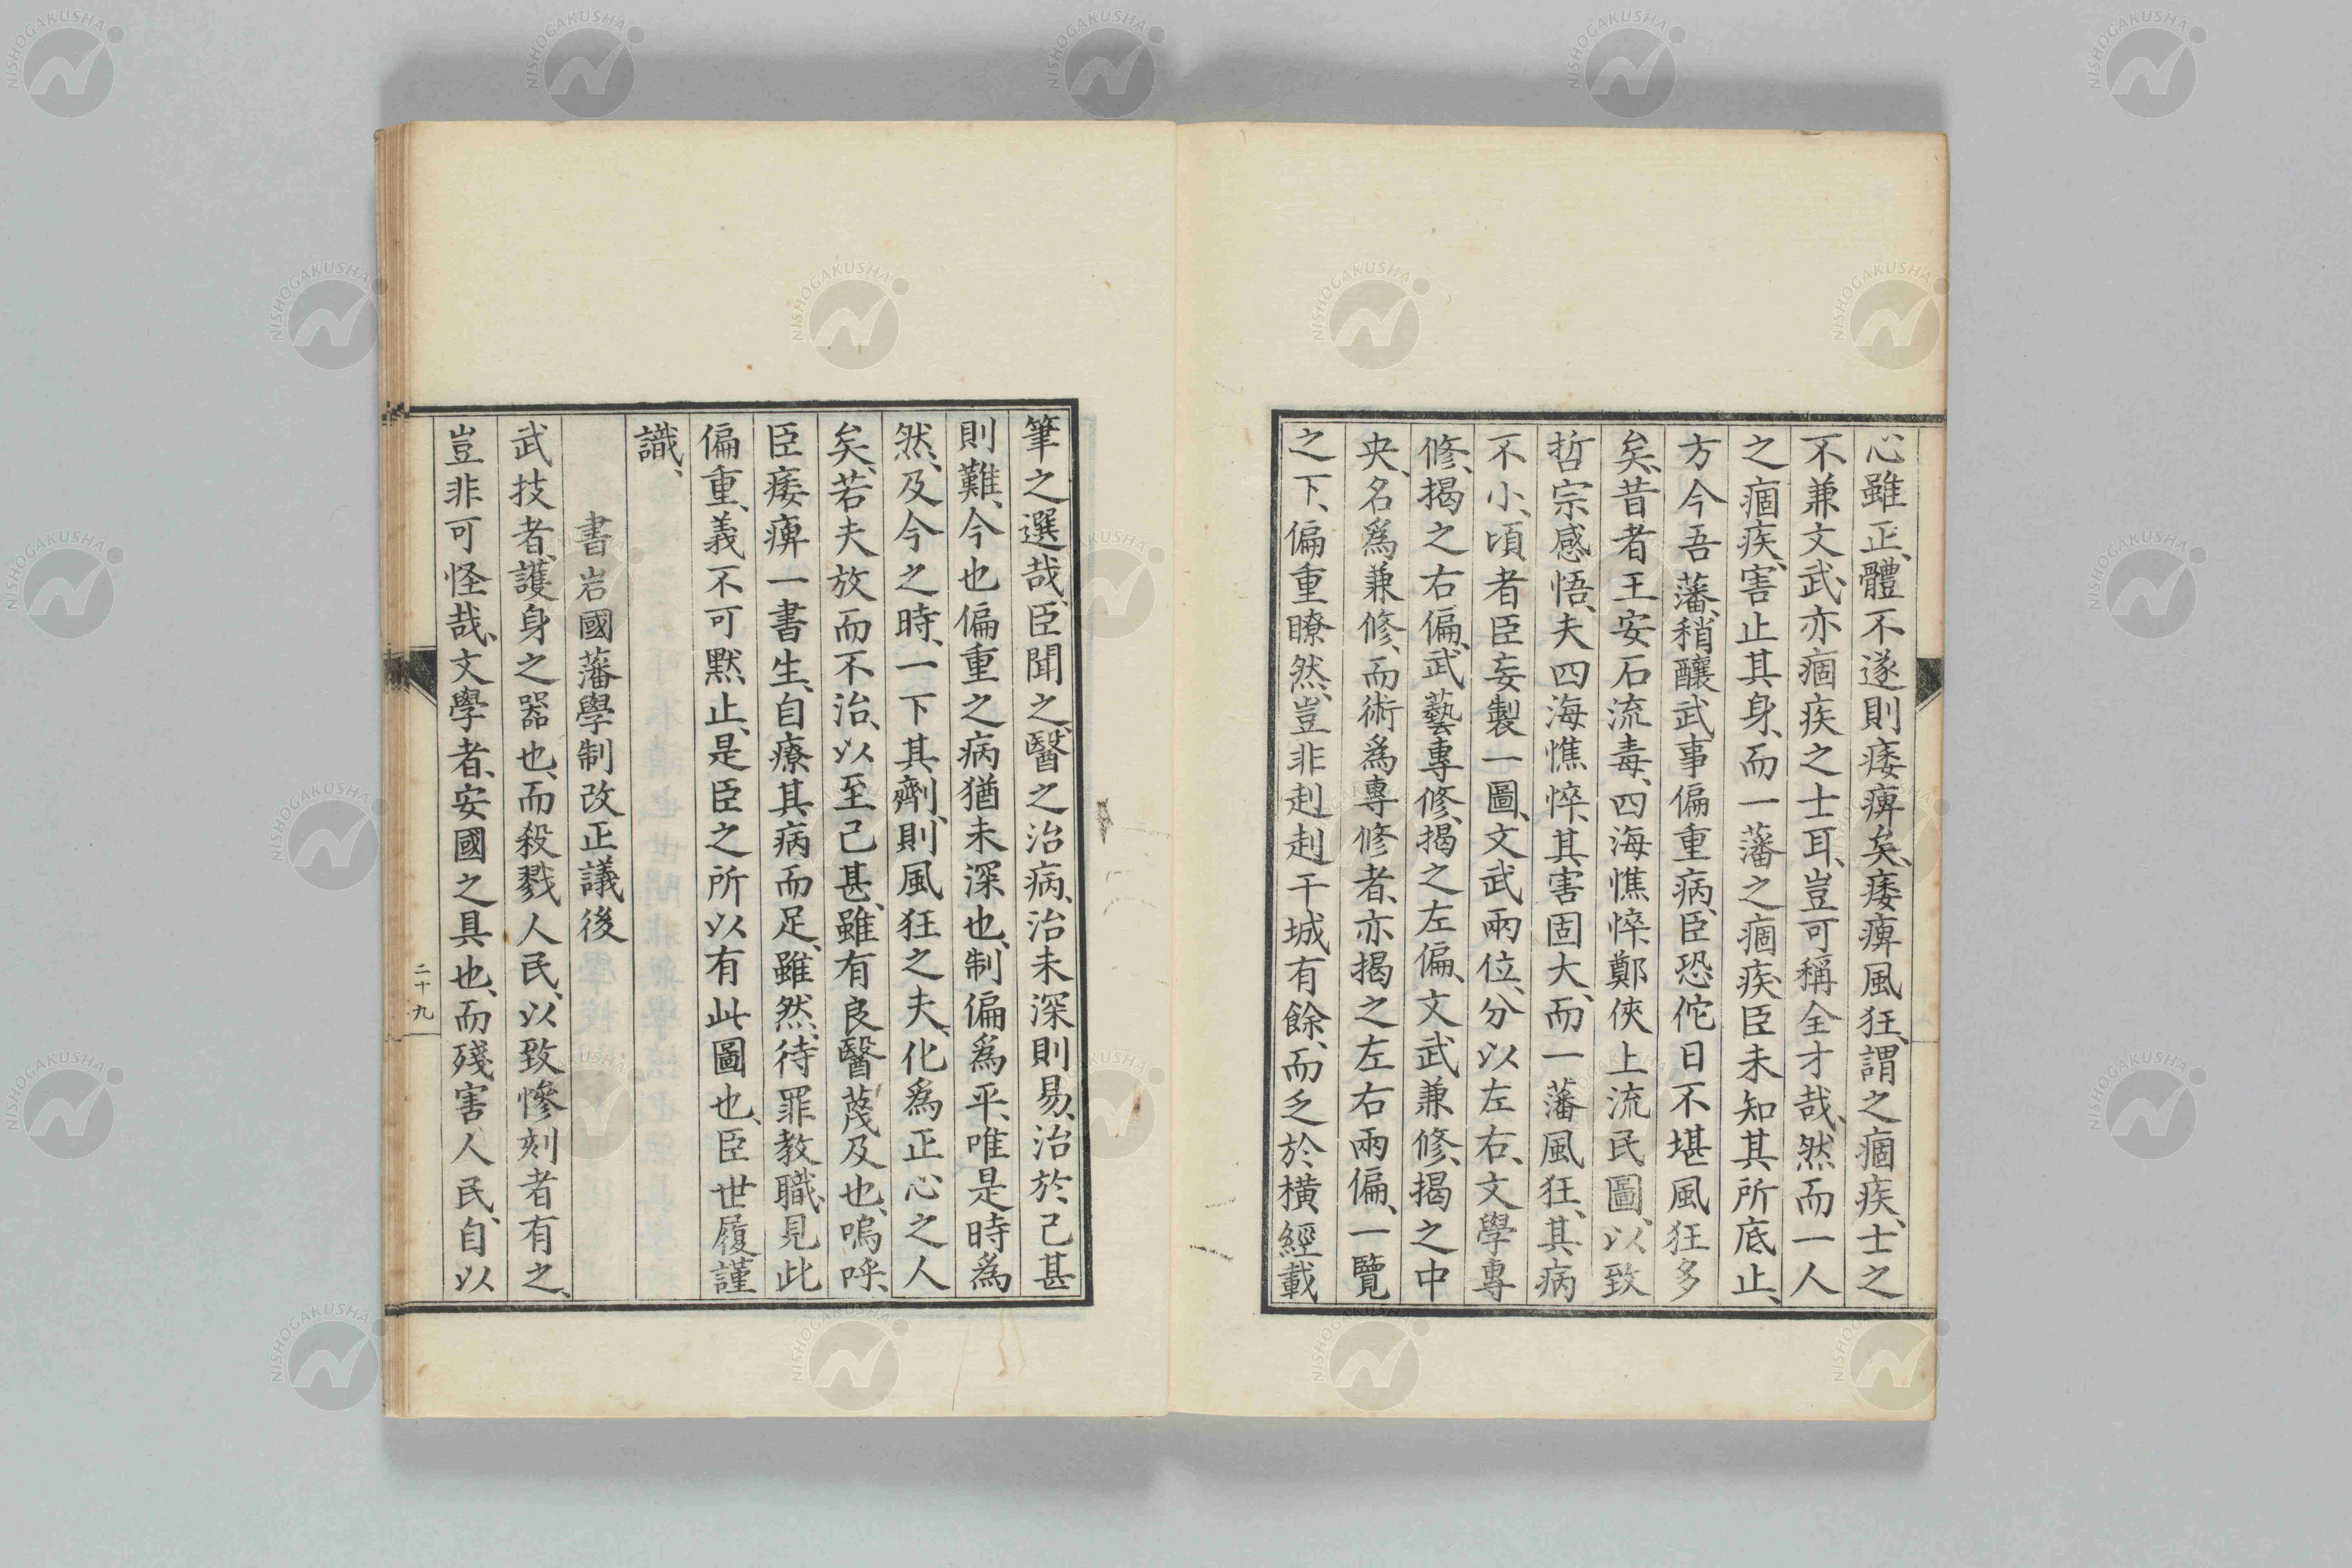 心雖正、體不遂則痿痺矣、痿痺風狂、謂之痼疾、士之
不兼文武、亦痼疾之士耳、豈可稱全才哉、然而一人
之痼疾、害止其身、而一藩之痼疾、臣未知其所底止、
方今吾藩、稍釀武事偏重病、臣恐佗日不堪風狂多
矣、昔者王安石流毒、四海憔悴、鄭俠上流民圖、以致
哲宗感悟、夫四海憔悴、其害固大、而一藩風狂、其病
不小、頃者臣妄製一圖、文武兩位、分以左右、文學專
修、揭之右偏、武藝專修、揭之左偏、文武兼修、揭之中
央、名爲兼修、而術爲專修者、亦揭之左右兩偏、一覽
之下、偏重瞭然、豈非赳赳干城有餘、而乏於橫經載
筆之選哉、臣聞之、醫之治病、治未深則易、治於已甚
則難、今也偏重之病猶未深也、制偏爲平、唯是時爲
然、及今之時、一下其劑、則風狂之夫、化爲正心之人
矣、若夫放而不治、以至已甚、雖有良醫蔑及也、嗚呼、
臣痿痺一書生、自療其病而足、雖然、待罪教職、見此
偏重、義不可默止、是臣之所以有此圖也、臣世履謹
識、
書岩國藩學制改正議後
武技者、護身之器也、而殺戮人民、以致慘刻者有之、
豈非可怪哉、文學者、安國之具也、而殘害人民、自以
二十九
NISHOGAKUSHA